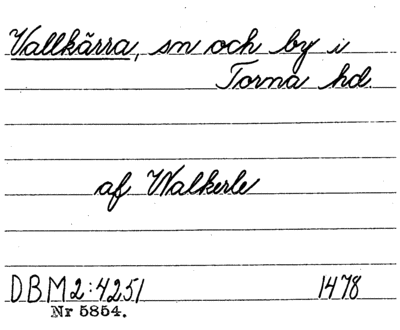 Vallkärra, sn och by i
Torna hd.
af Walkerle
DBM 2:4251 1478
Nr 5854.